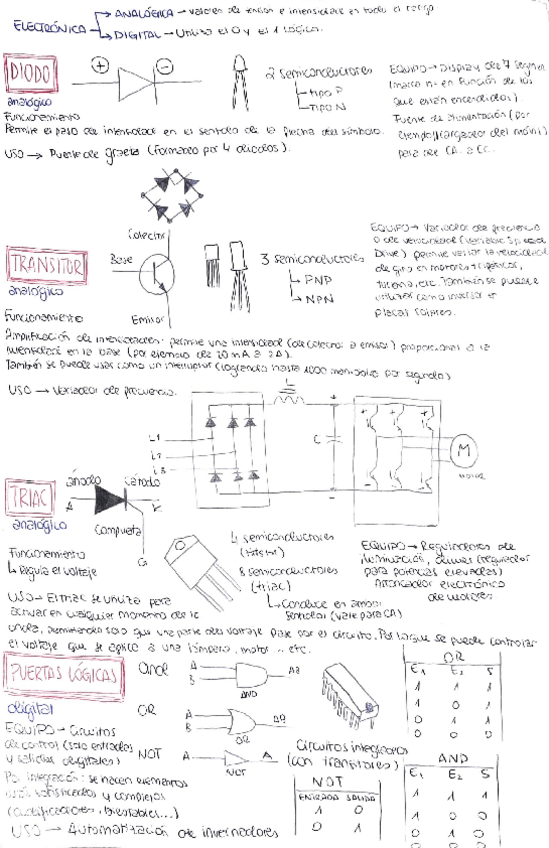 ELECTRÓNICA
ANALÓGICA → valores de tensión e intensidad en todo el rango
DIGITAL → Utiliza el 0 y el 1 lógica.
DIODO
analógico
2 semiconductores
tipo P
Tipo N
EQUIPO → Display de 7 segmen
(marca nº en función de los
que están encendidos).
Fuente de alimentación (por
ejemplo, cargador del móvil)
para de CA. a CC.
Funcionamiento
Permite el paso de intensidad en el sentido de la flecha del símbolo.
USO → Puente de graetz (formado por 4 diodos).
TRANSITOR
analógico
Colector
Base
Emisor
3 semiconductores
PNP
NPN
EQUIPO → Variador de frecuencia
o de velocidad (Variable Speed
Drive) permite variar la velocidad
de giro en motores trifásicos,
turbina, etc. También se puede
utilizar como inversor en
placas solares.
Funcionamiento
Amplificación de intensidades: permite una intensidad (de colector a emisor) proporcional a la
intensidad en la base (por ejemplo de 20 mA a 2A).
También se puede usar como un interruptor (logrando hasta 1000 maniobras por segundo)
USO → Variador de frecuencia.
L
L1
L2
L3
C
M
MOTOR
TRIAC
analógico
ánodo
cátodo
A
K
Compuerta
G
4 semiconductores
(tiristor)
8 semiconductores
(triac)
Conduce en ambos
sentidos (vale para CA)
EQUIPO → Reguladores de
iluminación, dimmers (regulador
para potencias elevadas)
Arrancador electrónico
de motores.
Funcionamiento
Regula el voltaje
USO → El triac se utiliza para
activar en cualquier momento de la
onda, permitiendo solo que una parte del voltaje pase por el circuito. Por lo que se puede controlar
el voltaje que se aplica a una lámpara, motor... etc.
PUERTAS LÓGICAS
digital
And
A
B
AND
OR
A
B
OR
NOT
A
NOT
A
Circuitos integrados
(con transitores)
EQUIPO → Circuitos
de control (solo entradas
y salidas digitales)
Por integración: se hacen elementos
y complejos
(codificadores, biestables...)
USO → Automatización de invernaderos
NOT
ENTRADA SALIDA
1 0
0 1
OR
E1 E2 S
1 1 1
1 0 1
0 1 1
0 0 0
AND
E1 E2 S
1 1 1
1 0 0
0 1 0
0 0 0